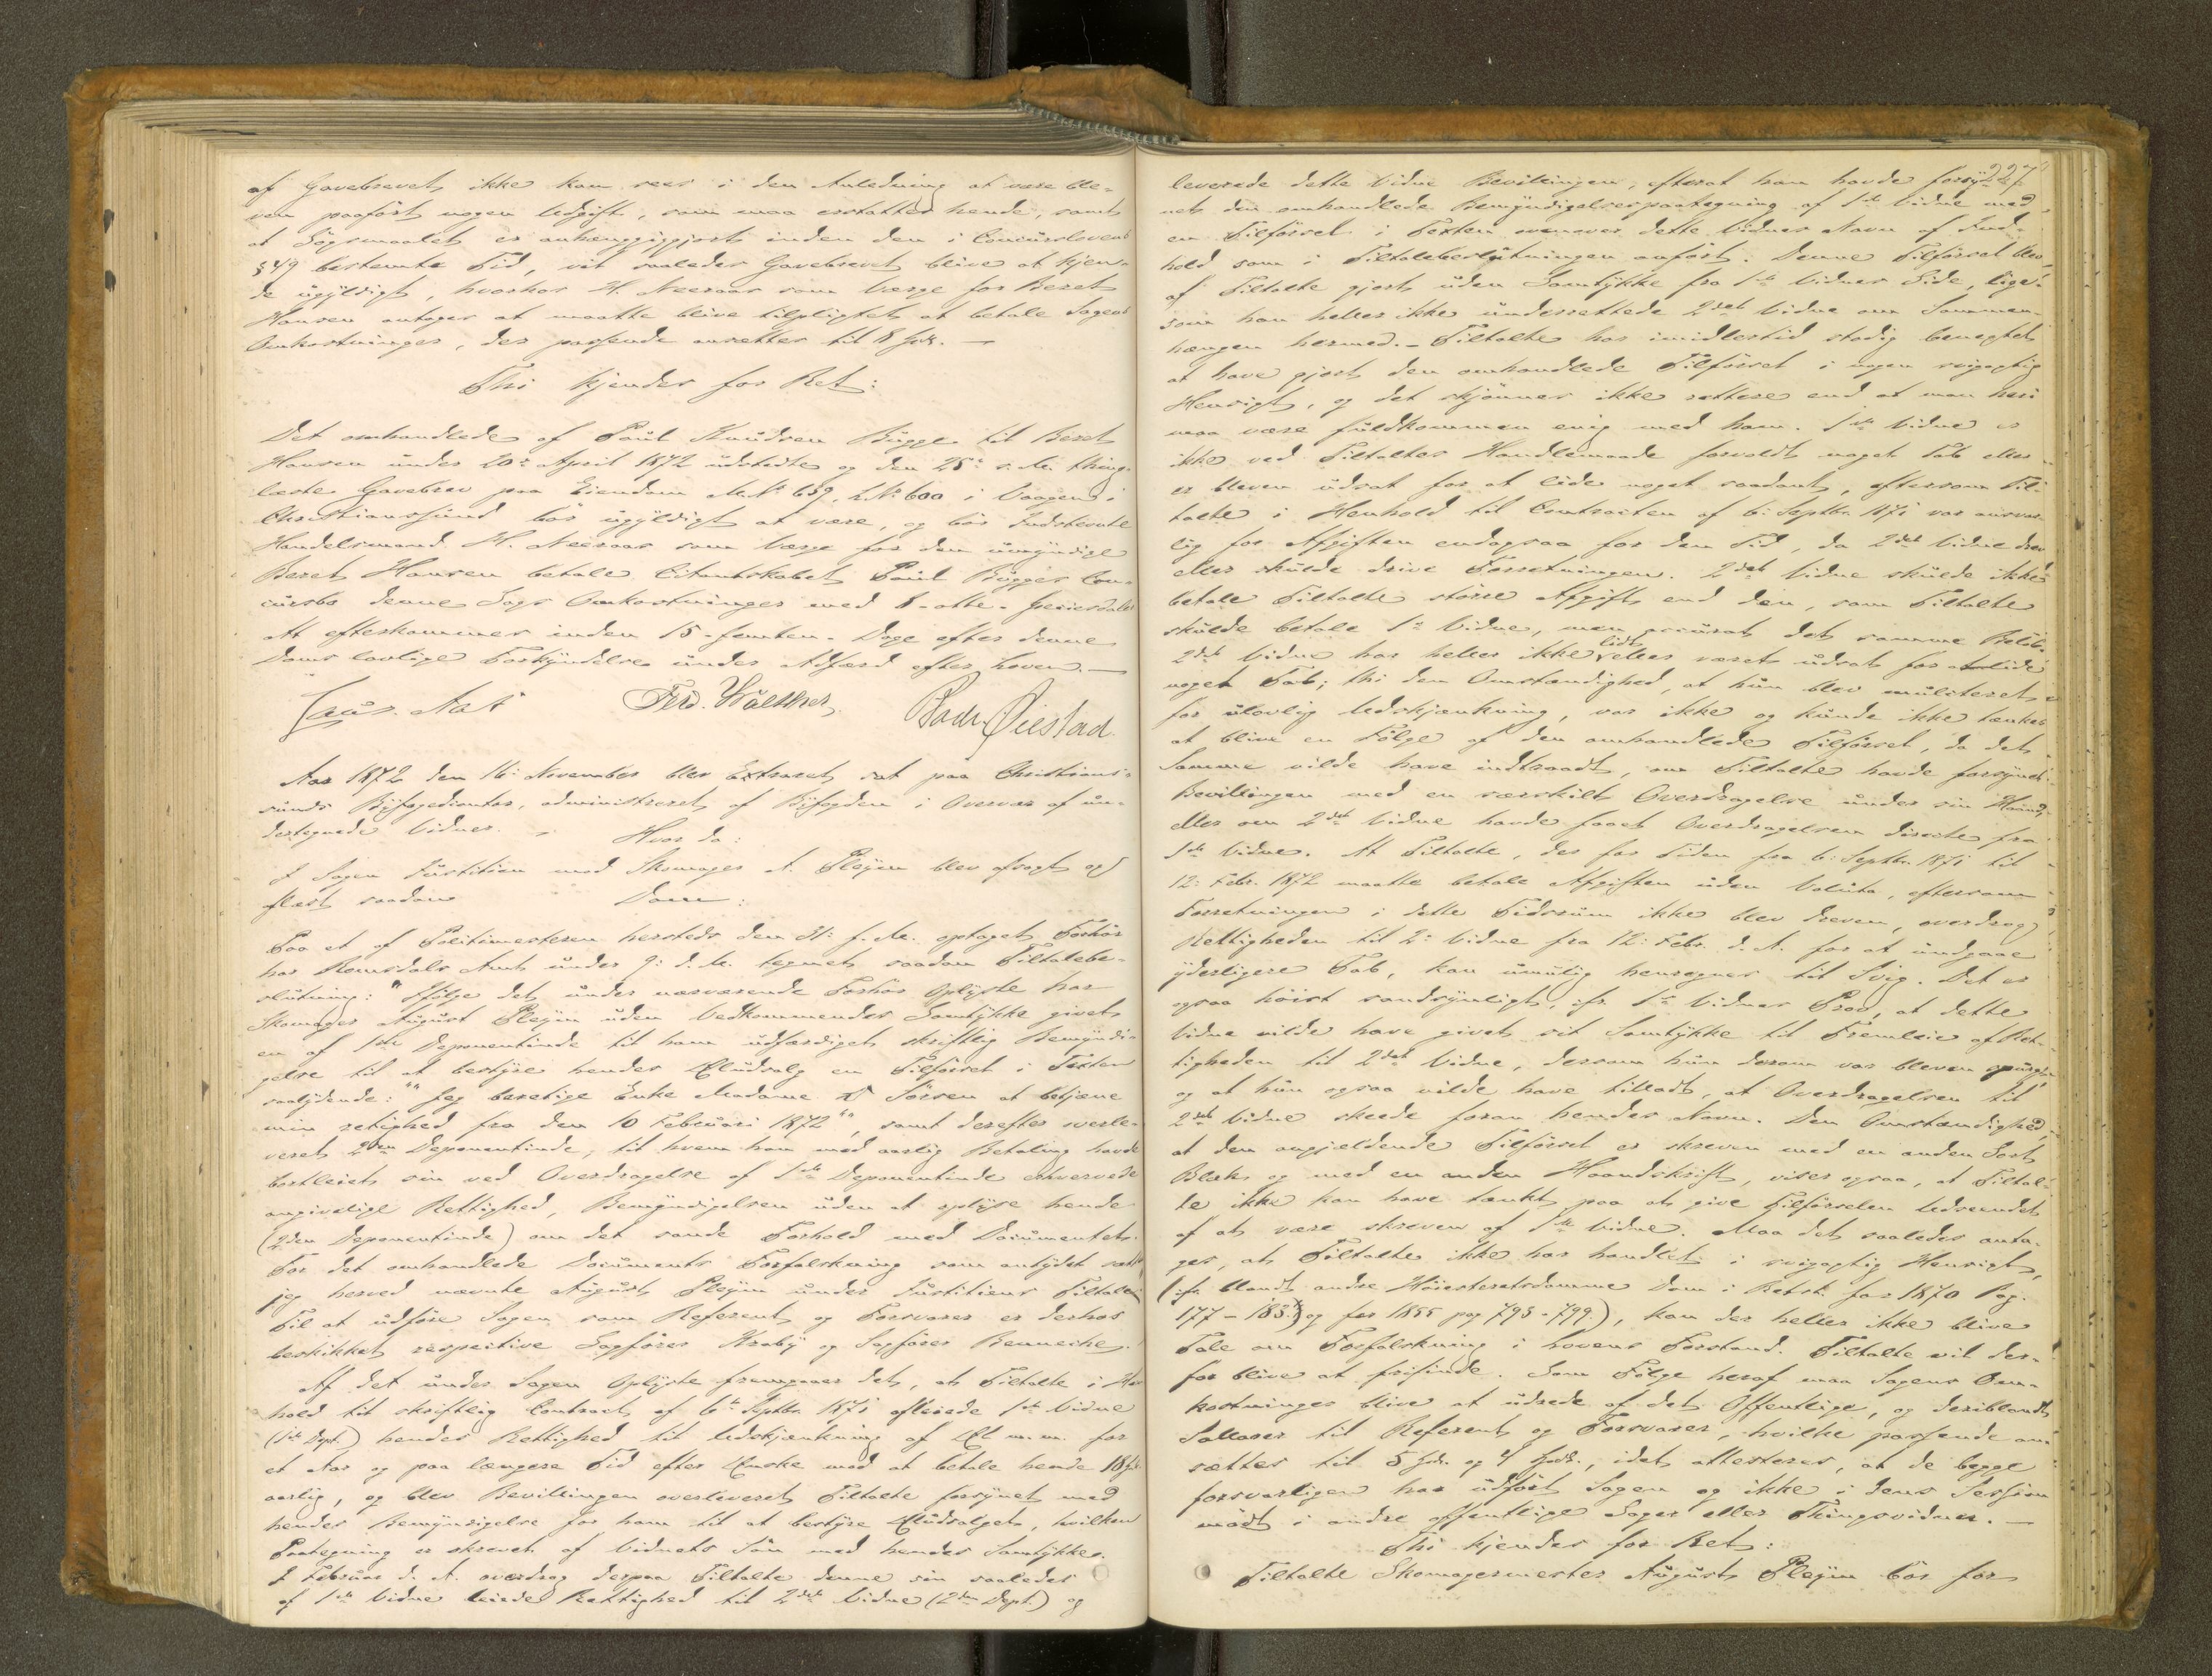 af Gavebrevet ikke kan sees i den Anledning at være ble-
ven paaført nogen Udgift, som maa erstattes hende, samt
at Søgsmaalet er anhængiggjort inden den i Concurslovens
§ 49 bestemte Tid, vil saaledes Gavebrevet blive at kjen-
de ugyldigt, hvorhos H. Neeraas som Værge for Beret
Hansen antages at maatte blive tilpligtet at betale Sagens
Omkostninger, der passende ansættes til 8 Spd. —
Thi kjendes for Ret:
Det omhandlede af Paul Knudsen Bugge til Beret
Hansen under 20de April 1872 udstedte og den 25de s. M. thing-
læste Gavebrev paa Eiendom M.N. 659, L.N. 600 i Vaagen i
Christianssund bør ugyldigt at være, og bør Indstevnte
Handelsmand H. Neeraas som Værge for den umyndige
Beret Hansen betale Citantskabet Paul Bugges Con-
cursbo denne Sags Omkostninger med 8 - otte - Speciesdaler
At efterkommes inden 15 - femten - Dage efter denne
Doms lovlige Forkyndelse under Adfærd efter Loven. —
Ferd. Walther. Øiestad.
Aar 1872 den 16: November blev Extraret sat paa Christians-
sunds Byfogedcontor, administreret af Byfogden i Overvær af un-
dertegnede Vidner. Hvor da:
I Sagen Justitien mod Skomager A. Pleym blev afsagt og
aflæst saadan Dom:
Paa et af Politimesteren hersteds den 31: f. M. optaget Forhør
har Romsdals Amt under 9: d. M. tegnet saadan Tiltalebe-
slutning: "Ifølge det under nærværende Forhør Oplyste har
Skomager August Pleym uden Vedkommendes Samtykke givet
en af 1ste Deponentinde til ham udfærdiget skriftlig Bemyndi-
gelse til at bestyre hendes Øludsalg en Tilførsel i Texten
saalydende: "" Jeg beretige Enke Madame Sørsen at betjæne
min retighed fra den 10 Februari 1872 "", samt derefter overle-
veret 2den Deponentinde, til hvem han mod aarlig Betaling havde
bortleiet sin ved Overdragelse af 1ste Deponentinde erhvervede
angivelige Rettighed, Bemyndigelsen uden at oplyse hende
(2den Deponentinde) om det sande Forhold med Documentet.
For det omhandlede Documents Forfalskning som antydet sættes
jeg herved nævnte August Pleym under Justitiens Tiltale.
Til at udføre Sagen som Referent og Forsvarer er derhos
beskikket respective Sagfører Kraby og Sagfører Bennecke."
Af det under Sagen Oplyste fremgaaer det, at Tiltalte i Hen-
hold til skriftlig Contract af 6te Septbr. 1871 afleiede 1ste Vidne
(1ste Dept.) hendes Rettighed til Udskjænkning af Øl m. m. for
et Aar og paa længere Tid efter Ønske mod at betale hende 18 Spd.
aarlig, og blev Bevillingen overleveret Tiltalte forsynet med
hendes Bemyndigelse for ham til at bestyre Øludsalget, hvilken
Paategning er skrevet af Vidnets Søn med hendes Samtykke.
I Februar d. A. overdrog derpaa Tiltalte denne sin saaledes
af 1ste Vidne leiede Rettighed til 2det Vidne (2den Dept.) og
227
leverede dette Vidne Bevillingen, efterat han havde forsy-
net den omhandlede Bemyndigelsespaategning af 1ste Vidne med
en Tilførsel i Texten ovenover dette Vidnes Navn af Ind-
hold som i Tiltalebeslutningen anført. Denne Tilførsel blev
af Tiltalte gjort uden Samtykke fra 1ste Vidnes Side, lige-
som han heller ikke underrettede 2det Vidne om Sammen-
hængen hermed. - Tiltalte har imidlertid stadig benegtet
at have gjort den omhandlede Tilførsel i nogen svigagtig
Hensigt, og det skjønnes ikke rettere end at man heri
maa være fuldkommen enig med ham. 1ste Vidne er
ikke ved Tiltaltes Handlemaade forvoldt noget Tab eller
er bleven udsat for at lide noget saadant, eftersom Til-
talte i Henhold til Contracten af 6: Septbr. 1871 var ansvar-
lig for Afgiften endogsaa for den Tid, da 2det Vidne drev
eller skulde drive Forretningen. 2det Vidne skulde ikke
betale Tiltalte større Afgift end den, som Tiltalte
skulde betale 1ste Vidne, men accurat det samme Beløb.
2det Vidne har heller ikke lidt eller været udsat for at lide
noget Tab; thi den Omstændighed, at hun blev mulcteret
for ulovlig Udskjænkning, var ikke og kunde ikke tænkes
at blive en Følge af den omhandlede Tilførsel, da det
Samme vilde have indtraadt, om Tiltalte havde forsynet
Bevillingen med en særskilt Overdragelse under sin Haand,
eller om 2det Vidne havde faaet Overdragelsen directe fra
1ste Vidne. At Tiltalte, der for Tiden fra 6: Septbr. 1871 til
12: Febr. 1872 maatte betale Afgiften uden Valuta, eftersom
Forretningen i dette Tidsrum ikke blev dreven, overdrog
Rettigheden til 2: Vidne fra 12: Febr. d. A. for at undgaae
yderligere Tab, kan umulig henregnes til Svig. Det er
ogsaa høist sandsynligt, cfr. 1ste Vidnes Prov, at dette
Vidne vilde have givet sit Samtykke til Fremleie af Ret-
tigheden til 2det Vidne, dersom hun derom var bleven spurgt,
og at hun ogsaa vilde have tilladt, at Overdragelsen til
2det Vidne skeede foran hendes Navn. Den Omstændighed,
at den angjeldende Tilførsel er skreven med en anden Sort
Blæk og med en anden Haandskrift, viser ogsaa, at Tiltal-
te ikke kan have tænkt paa at give Tilførselen Udseendet
af at være skreven af 1ste Vidne. Maa det saaledes anta-
ges, at Tiltalte ikke har handlet i svigagtig Hensigt,
(cfr. blandt andre Høiesteretsdomme Dom i Retst. for 1870 Pag.
177 - 183 og for 1855 pag 793 - 799.), kan der heller ikke blive
Tale om Forfalskning i Lovens Forstand. Tiltalte vil der-
for blive at frifinde. Som Følge heraf maa Sagens Om-
kostninger blive at udrede af det Offentlige, og deriblandt
Sallarer til Referent og Forsvarer, hvilke passende an-
sættes til 5 Spd. og 4 Spd., idet attesteres, at de begge
forsvarligen har udført Sagen og ikke i dens Session
mødt i andre offentlige Sager eller Thingsvidner. —
Thi kjendes for Ret:
Tiltalte Skomagermester August Pleym bør for